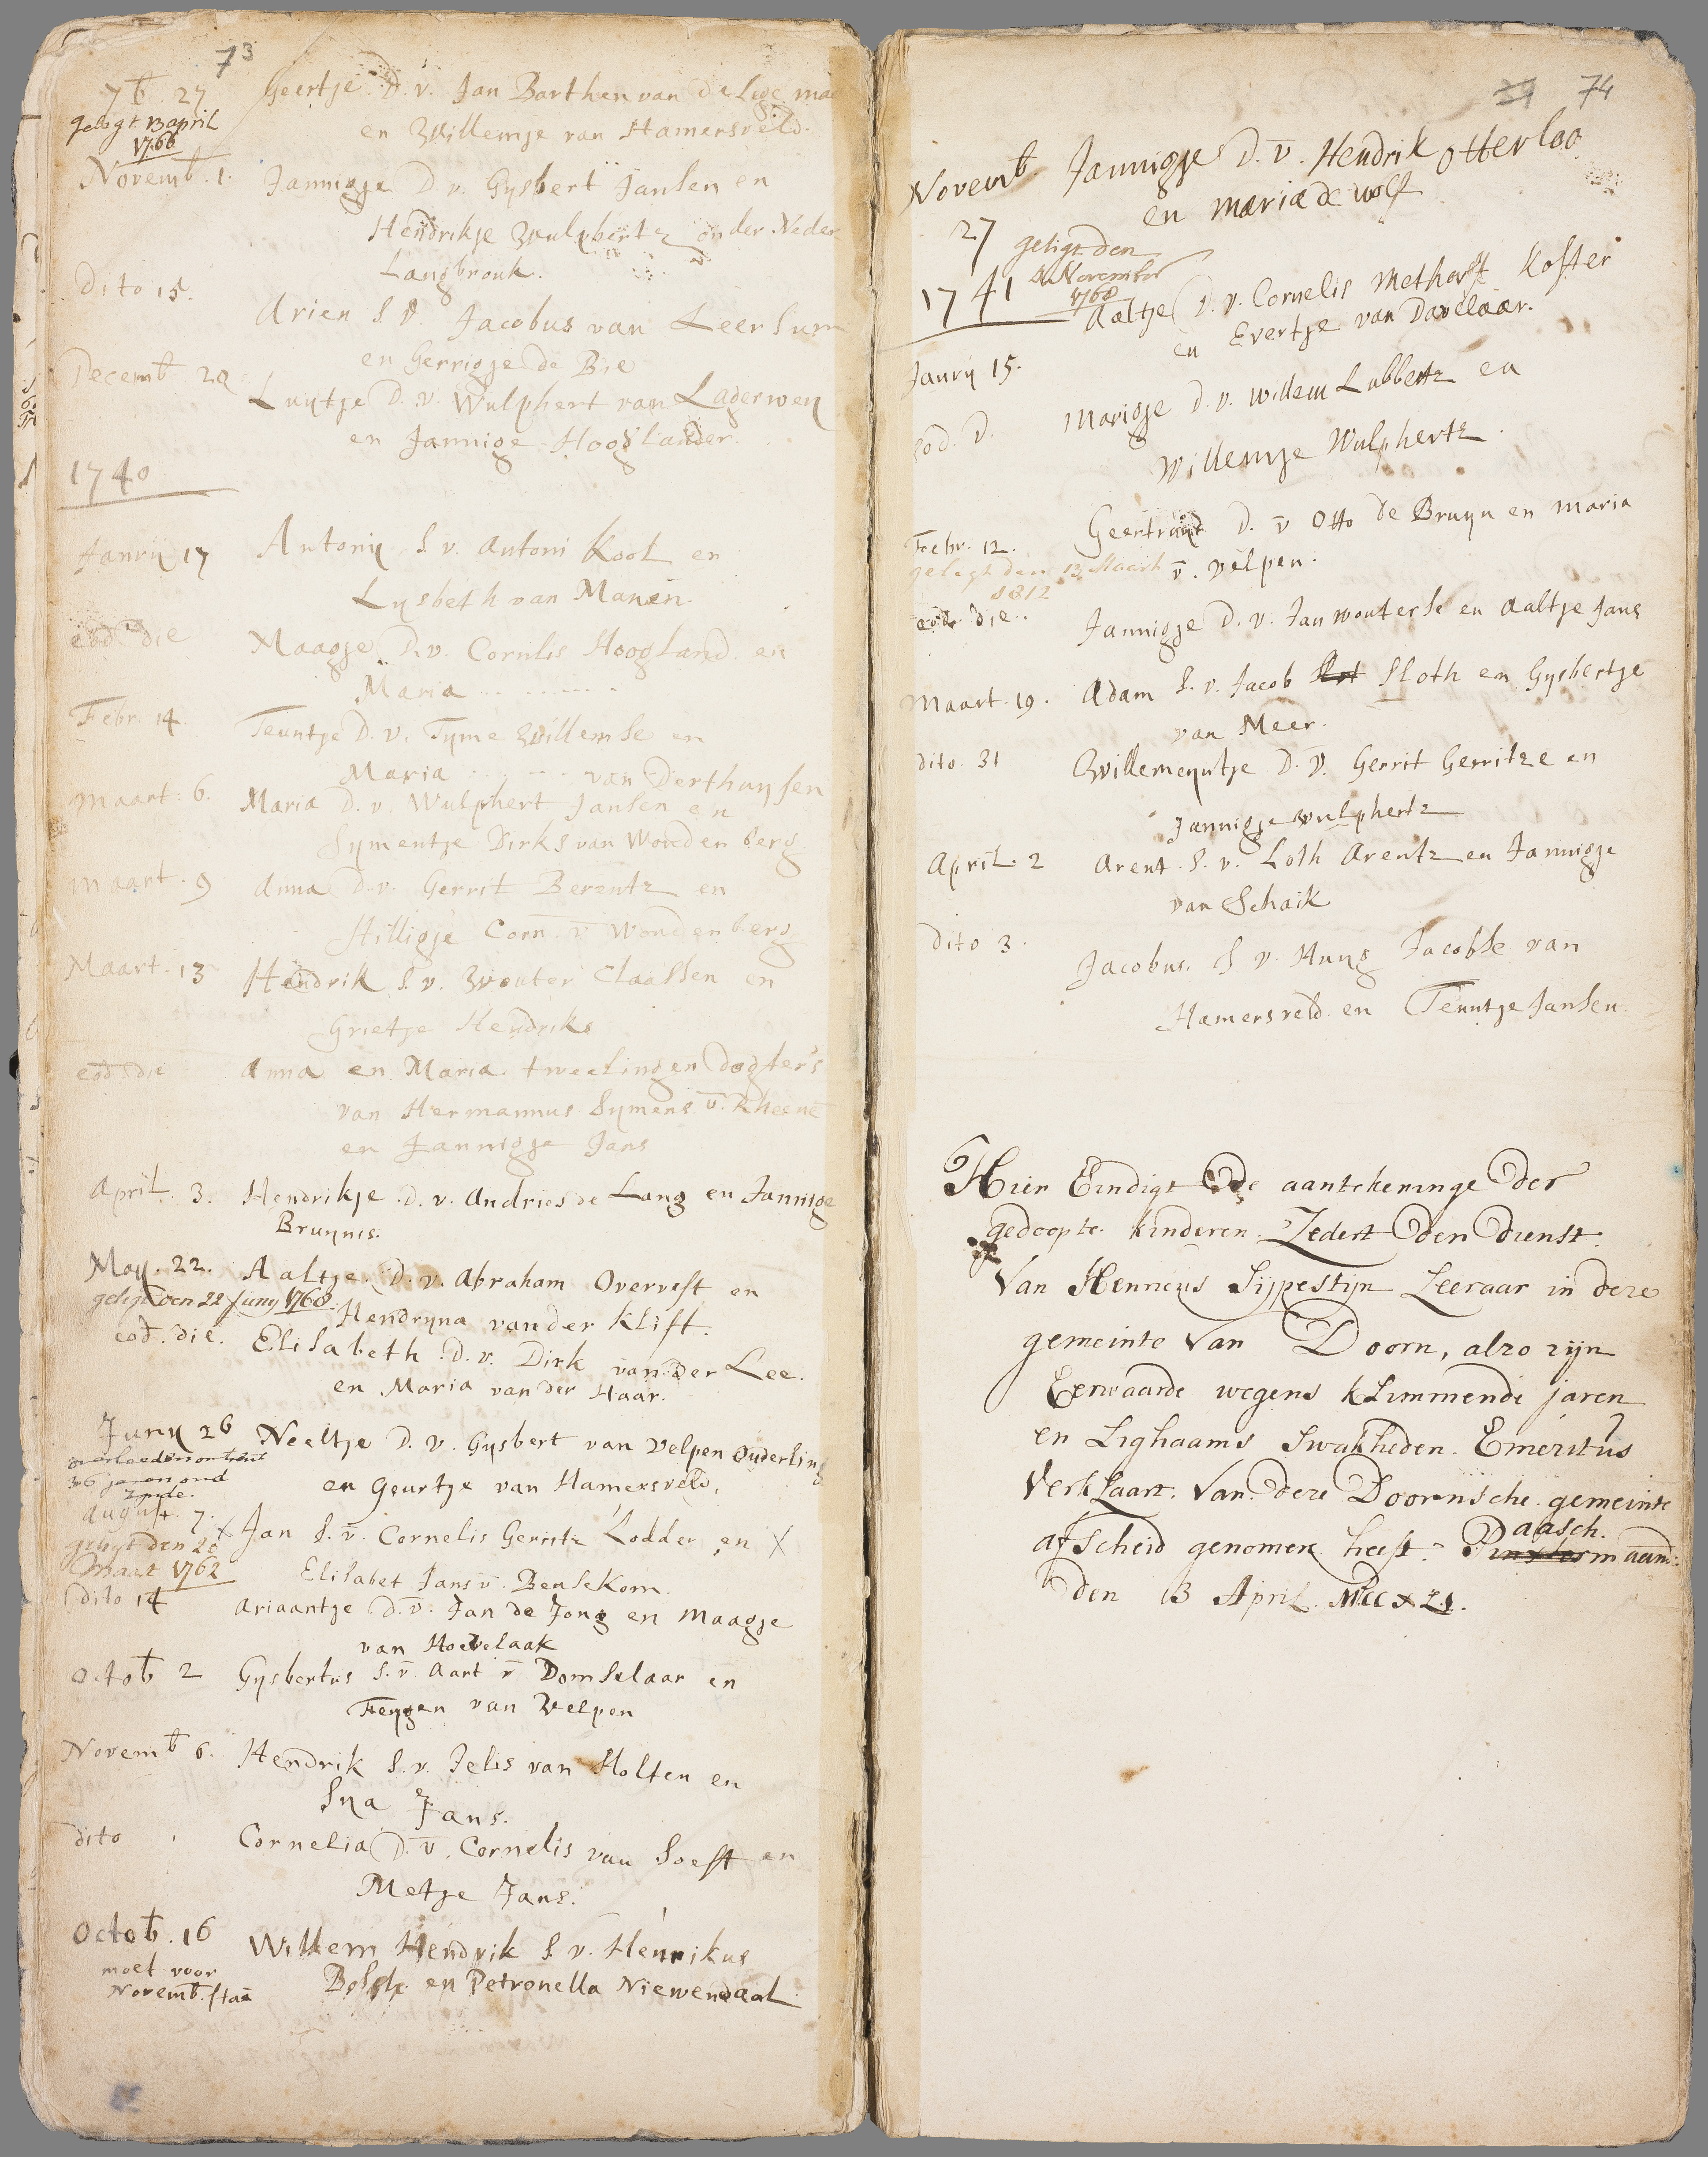 73
7b. 27. Geertje D. v. Jan Barthen van de Lege mae
geligt 13 april
1766
en Willemje van Hamersveld.
Novemb. 1. Jannigje D. v. Gysbert Jansen en
Hendrikje Wulphertz onder Neder
Langbrouk.
Dito 15. Arien S. v. Jacobus van Leersum
en Gerrigje de Bie
Decemb 20 Luytje D. v. Wulphert van Lagerwey
en Jannige Hooglander.
1740
Janrij 17 Antony S. v. Antoni Kool en
Lysbeth van Manen.
eod die Maagje D. v. Cornelis Hoogland en
Maria
Febr. 14. Teuntje D. v. Tyme Willemse en
Maria van Derthuysen
Maart. 6. Maria D. v. Wulphert Jansen en
Symentje Dirks van Woudenberg
Maart. 9 Anna D. v. Gerrit Berentz en
Hilligje Corn. v Woudenberg
Maart. 13 Hendrik S. v. Wouter Claassen en
Grietje Hendriks
eod die Anna en Maria tweelingen dogters
van Hermannus Symens v. Rheene
en Jannigje Jans
April. 3. Hendrikje D. v. Andries de Lang en Jannige
Bruynis.
May. 22. Aaltje. D. v. Abraham Overvest en
geligt den 22 Juny 1768. Hendryna van der Klift.
eod. die. Elisabeth D. v. Dirk van der Lee.
en Maria van der Haar.
Juny 26 Neeltje D. v. Gysbert van Velpen ouderling
overleeden omtrent
36 jaren oud
zynde.
en Geurtje van Hamersveld,
August. 7. x Jan S. v. Cornelis Gerritz Lodder en x
geligt den 20
Maart 1762
Elisabet Jans v. Bensekom.
Dito 14 Ariaantje D. v. Jan de Jong en Maagje
van Hoevelaak
Octob 2 Gysbertus S. v. Aart v Domselaar en
Feygen van Velpen
Novemb 6. Hendrik S. v. Jelis van Holten en
Sya Jans.
dito Cornelia D. v. Cornelis van Soest en
Metje Jans.
Octob. 16 Willem Hendrik S. v. Henrikus
moet voor
Novemb. staā
Bosch en Petronella Niewendaal
74
Novemb Jannigje D. v. Hendrik Otterloo
27 en Maria de Wolf
geligt den
November
1768
1741 Aaltje D. v. Cornelis Methorst Koster
en Evertje van Davelaar.
Janrij 15.
eod. d. Marigje D. v. Willem Lubbertz en
Willemje Wulphertz.
Febr. 12. Geertruyd D. v Otto de Bruyn en Maria
gelegt den 13 Maart v. Velpen.
1812
eod. die. Jannigje D. v. Jan Wouterse en Aaltje Jans
Maart. 19. Adam S. v. Jacob Slot Sloth en Gysbertje
van Meer.
dito. 31 Willemeyntje D. v. Gerrit Gerritze en
Jannigje Wulphertz
April. 2 Arent S. v. Loth Arentz en Jannigje
van Schaik
Dito 3. Jacobus. S v. Huyg Jacobse van
Hamersveld en Teuntje Jansen.
Hier Eindigt de aantekeninge der
gedoopte kinderen. Zedert den dienst
Van Hennens Sijpestijn Leeraar in deze
gemeinte van Doorn, alzo zijn
Eerwaarde wegens klimmende jaren
en Lighaams Swakheden. Emeritus
Verklaart. van deze Doornsche gemeinte
afscheid genomen heeft. Paasch.
Pinxtermaand:
den 13 April. MDCCXLI.